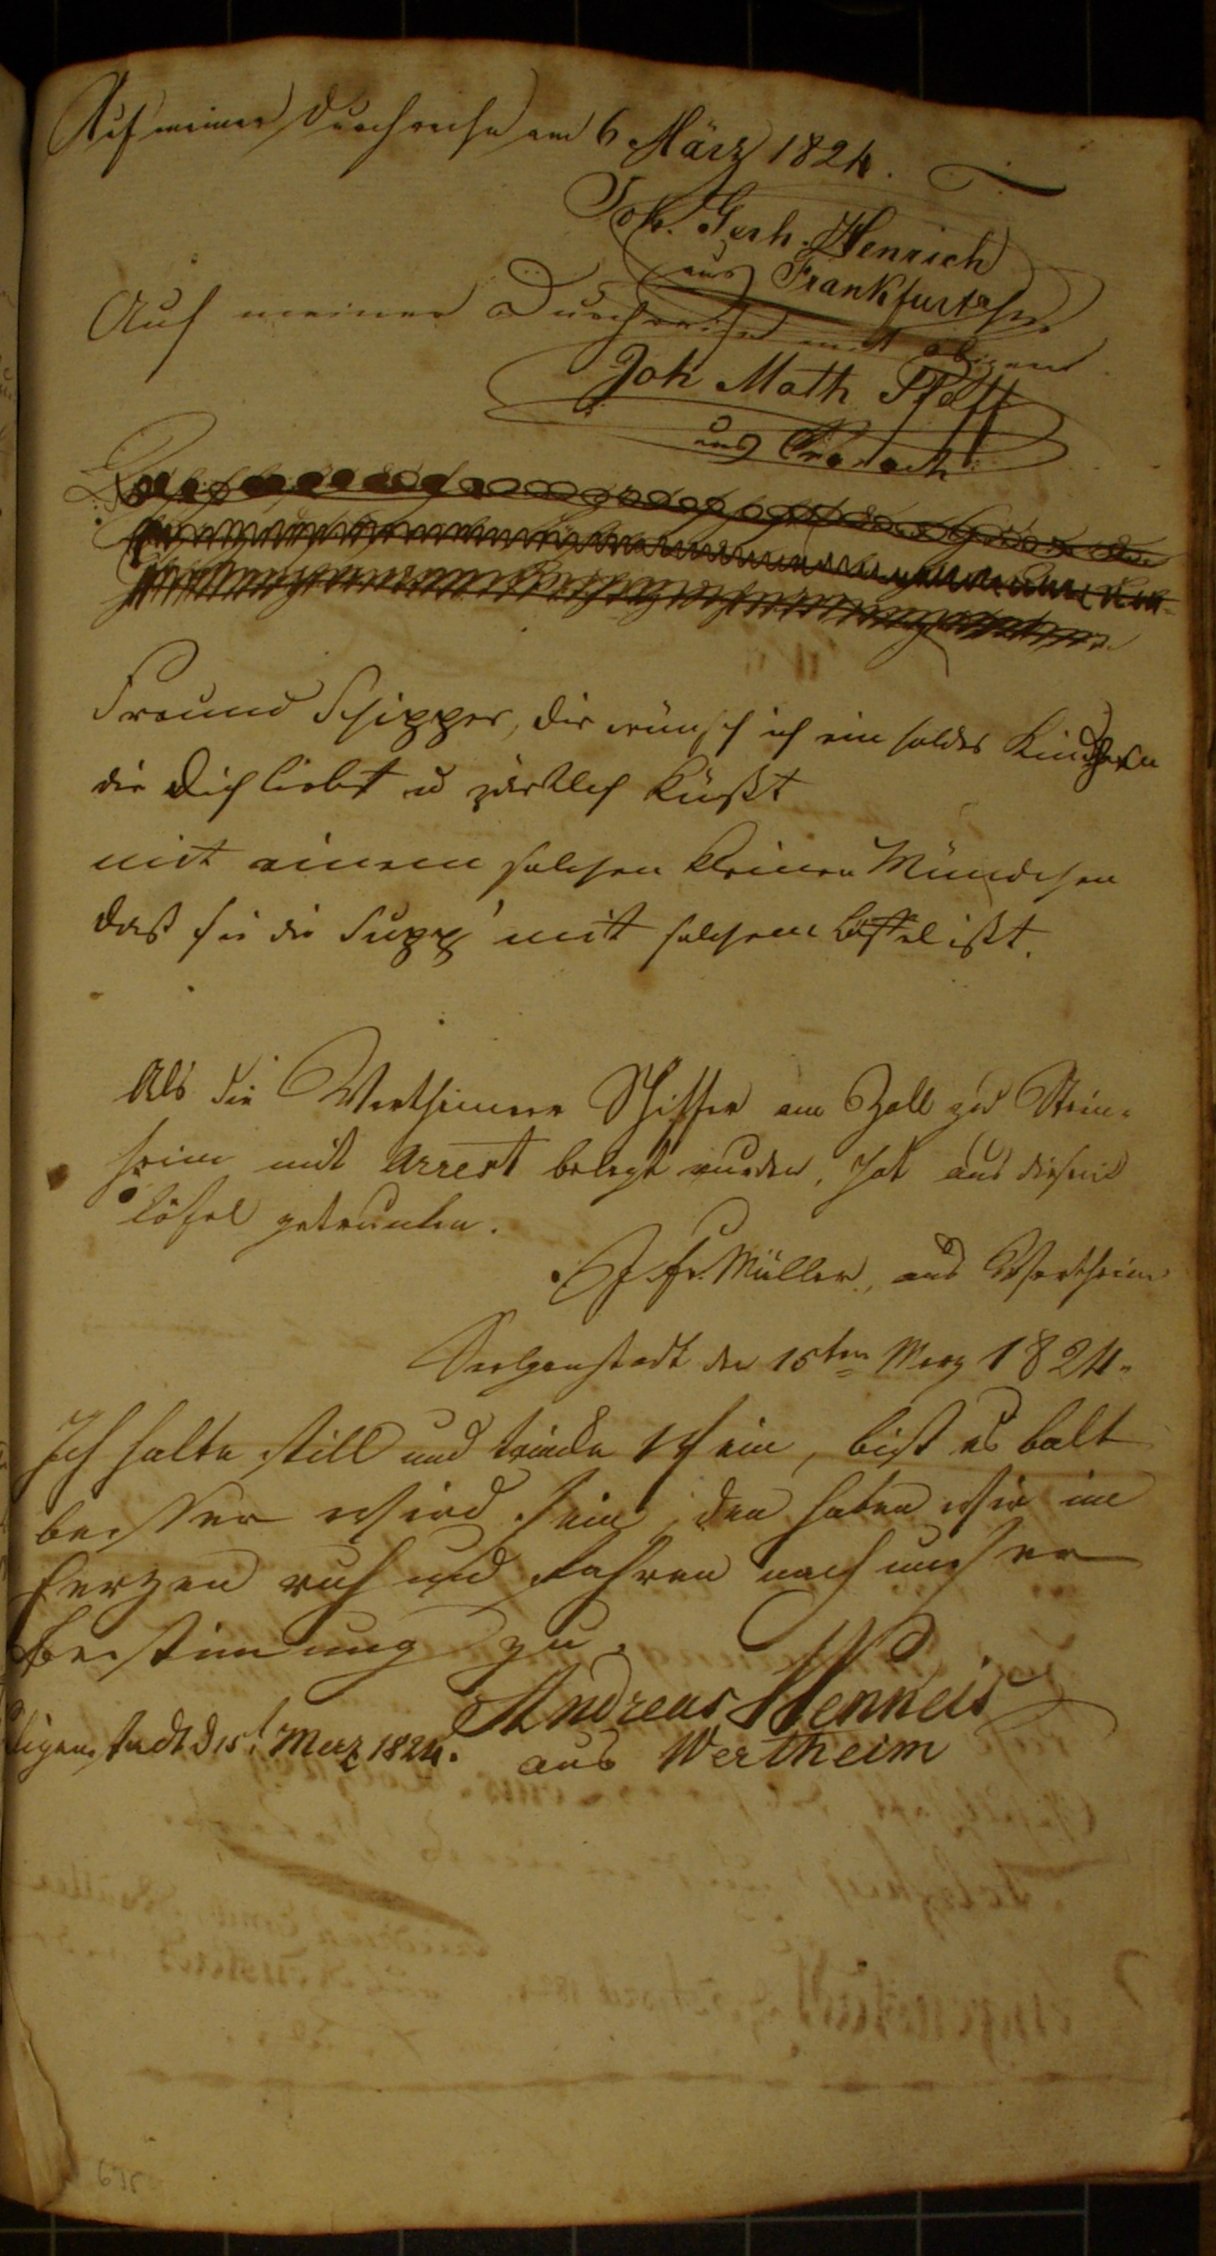 Auf meiner Durchreise am 6 März 1824.
Joh. Gerh. Henrich
aus Frankfurt a/m
Auf meiner Durchreise mit obigem
Joh Math Pfaff
aus
Freund Schipper, dir wünsch ich ein holdes Kindchen
die dich liebt u zärtlich küßt
mit einem solchen kleinen Mündchen
daß sie die Supp' mit solchem Löffel ißt.
Als die Wertheimer Schiffer am Zoll zu Stein-
heim mit Arrest belegt wurden, hat aus diesem
Löfel getrunken.
J. Fr. Müller, aus Wertheim
Seelgenstadt den 15ten Merz 1824.
Ich halte still und trinke Wein, bist es balt
besser wird sein, den haben wir im
Herzen ruh und fahren nach unser
Bestimung zu.
Andreas Henneis
aus Wertheim
ligenstadt d 15t. Merz 1824.